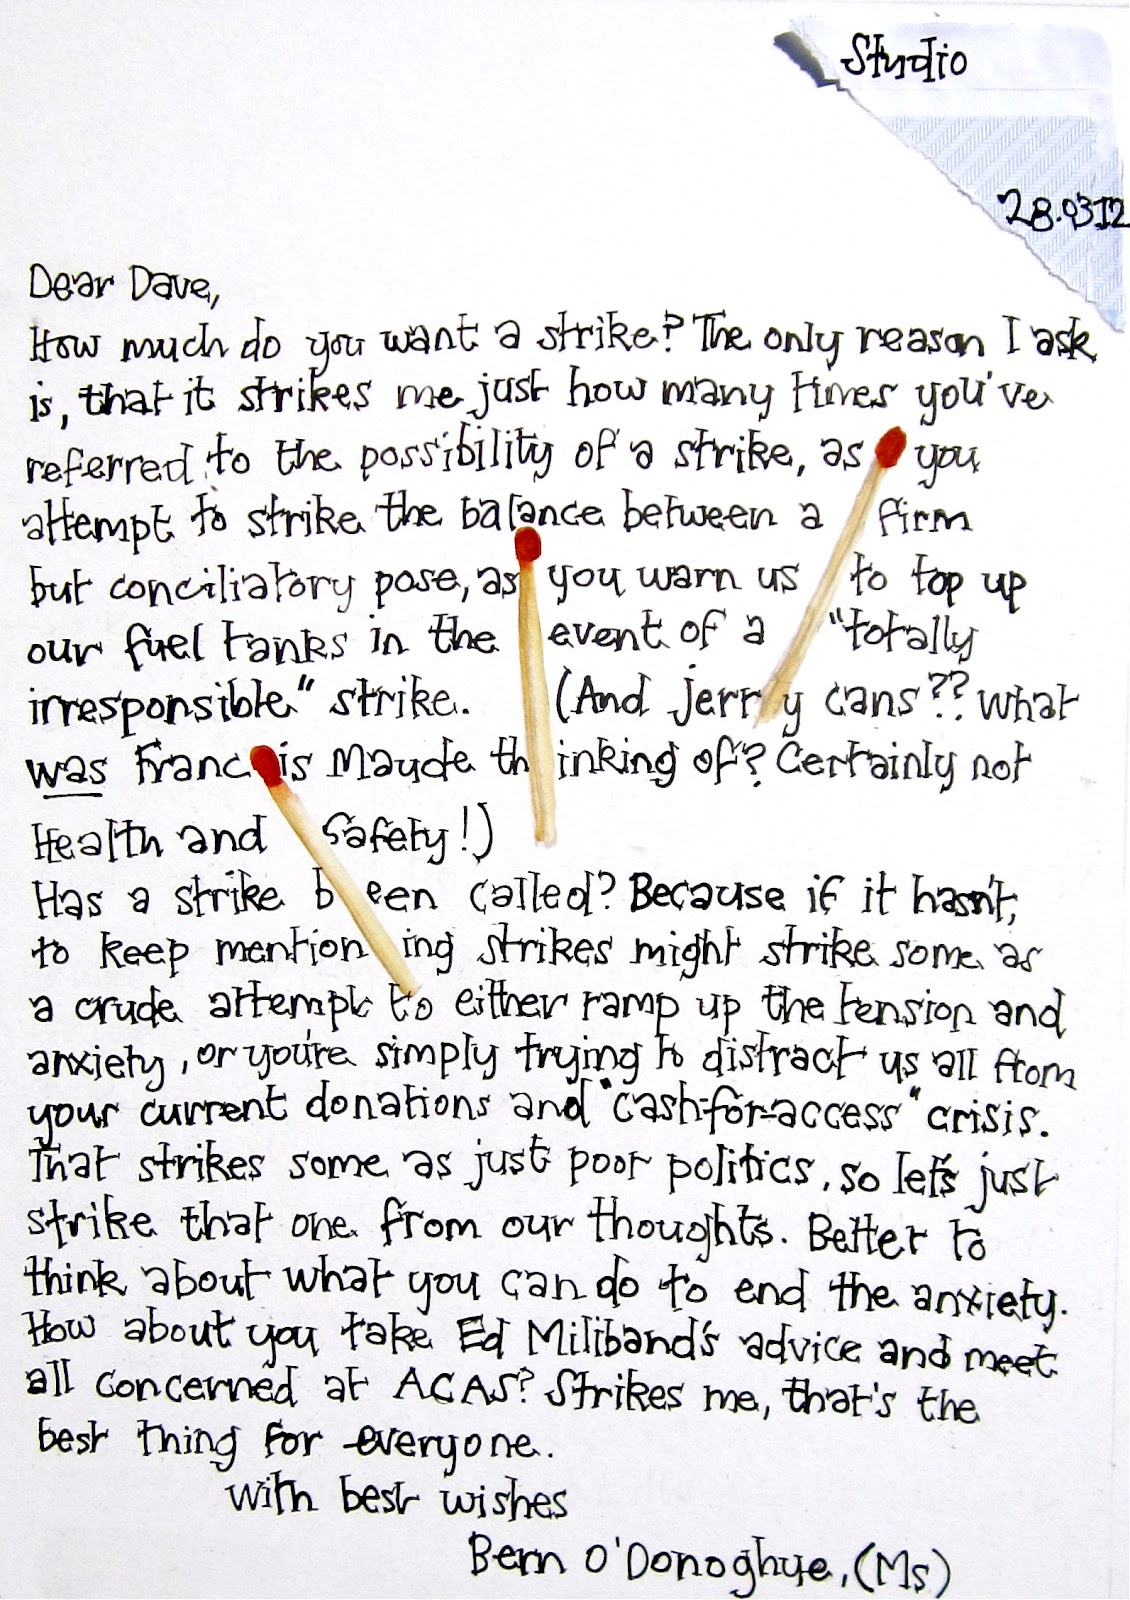 Studio
28.03 12
Dear Dave,
How much do you want a strike? The only reason I ask
is, that it strikes me just how many times you've
referred to the possibility of a strike, as you
attempt to strike the balance between a firm
but conciliatory pose, as you warn us to top up
our fuel tanks in the event of a "totally
irresponsible" strike. (And jerry cans?? What
was Francis Maude thinking of? Certainly not
Health and Safety!)
Has a strike been called? Because if it hasn't,
to keep mentioning strikes might strike some as
a crude attempt to either ramp up the tension and
anxiety, or you're simply trying to distract us all from
your current donations and "cash-for-access" crisis.
That strikes some as just poor politics, so let's just
strike that one from our thoughts. Better to
think about what you can do to end the anxiety.
How about you take Ed Miliband's advice and meet
all concerned at ACAS? Strikes me, that's the
best thing for everyone.
With best wishes
Bern O'Donoghue, (Ms)